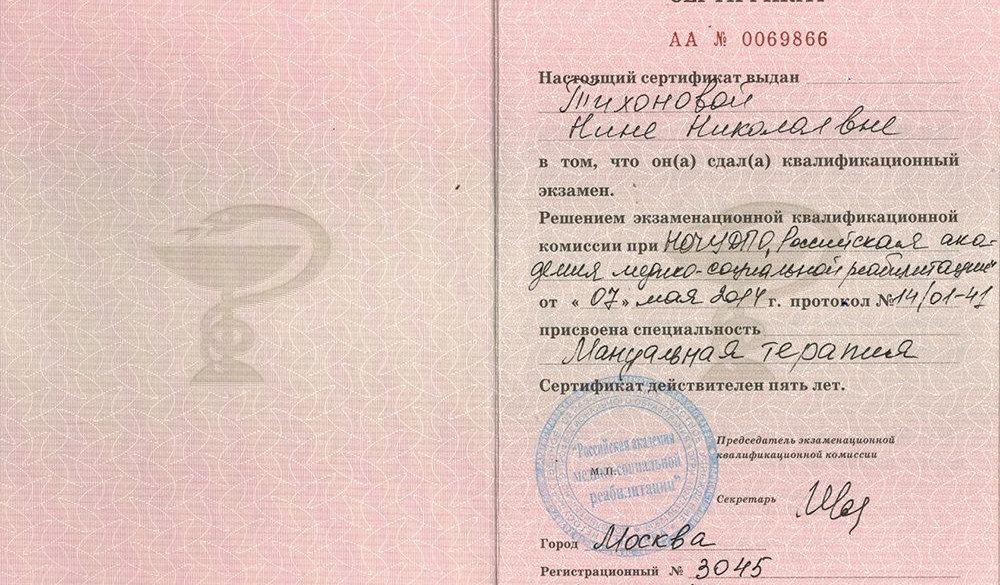 СЕРТИФИКАТ
АА № 0069866
Настоящий сертификат выдан
Тихоновой
Нине Николаевне
в том, что он(а) сдал(а) квалификационный
экзамен.
Решением экзаменационной квалификационной
комиссии при НОЧУДПО „Российская ака-
демия медико-социальной реабилитации"
от « 07 » мая 2014 г. протокол № 14/01-41
присвоена специальность
Мануальная терапия
Сертификат действителен пять лет.
Председатель экзаменационной
квалификационной комиссии
"Российская академия
М.П.
медико-социальной
реабилитации"
Секретарь
Город Москва
Регистрационный № 3045